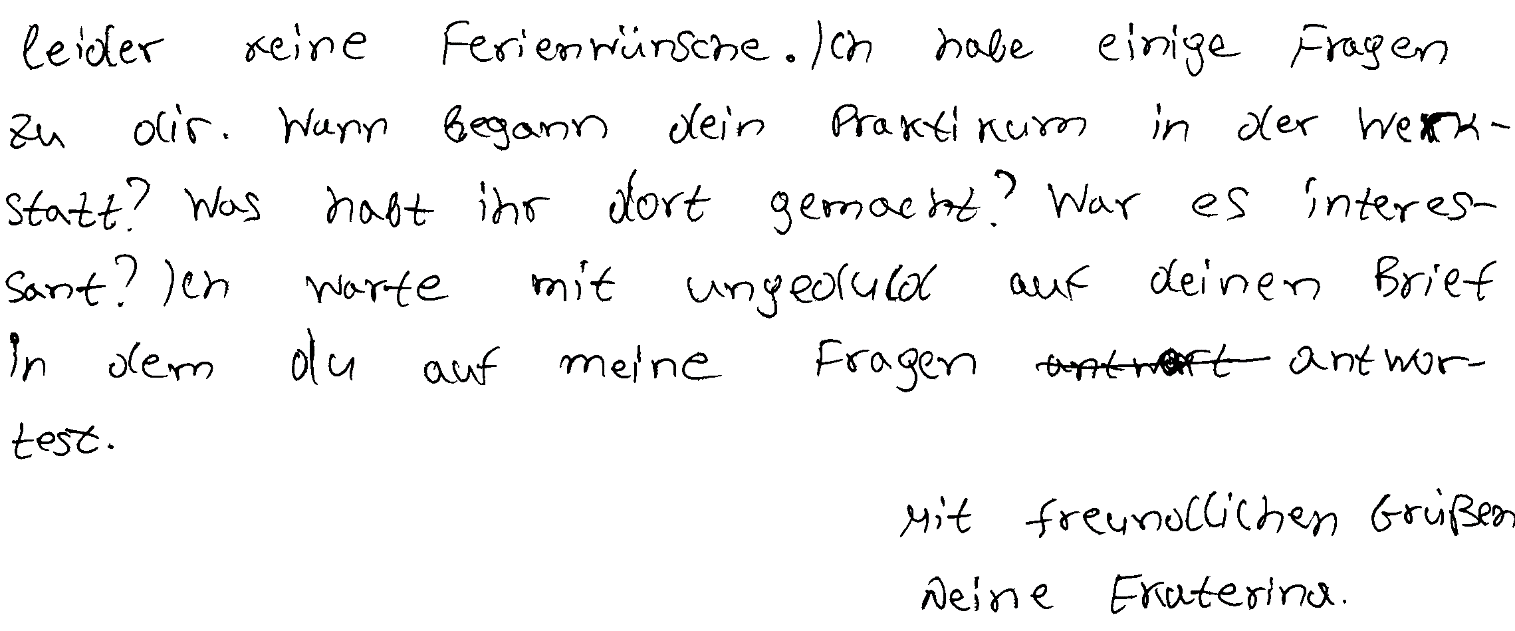 leider keine Ferienwünsche. Ich habe einige Fragen
zu dir. Wann begann dein Praktikum in der Werk-
statt? Was habt ihr dort gemacht? War es interes-
sant? Ich warte mit ungeduld auf deinen Brief
in dem du auf meine Fragen antwort antwor-
test.
Mit freundlichen Grüßen
Deine Ekaterina.